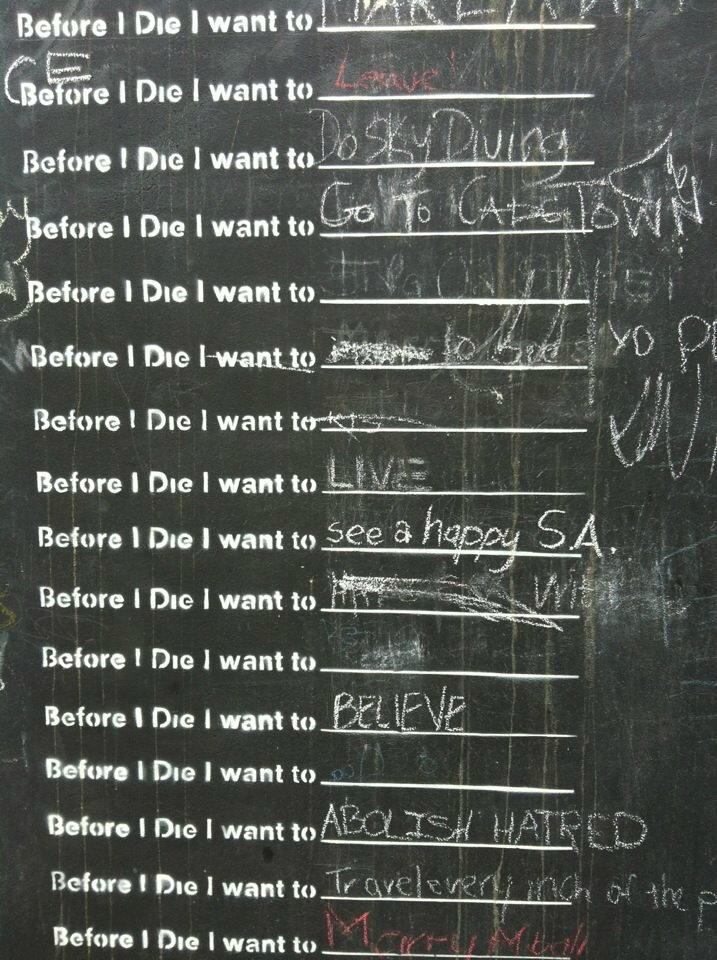 Before I Die I want to
GE
Before I Die I want to Leave
Before I Die I want to Do Sky Diving
Before I Die I want to Go To CAPE TOWN
Before I Die I want to
Before I Die I want to to
YO
Before I Die I want to
Before I Die I want to LIVE
Before I Die I want to see a happy S.A.
Before I Die I want to
Before I Die I want to
Before I Die I want to BELIEVE
Before I Die I want to
Before I Die I want to ABOLISH HATRED
Before I Die I want to Travel every inch of the p
Before I Die I want to Marry